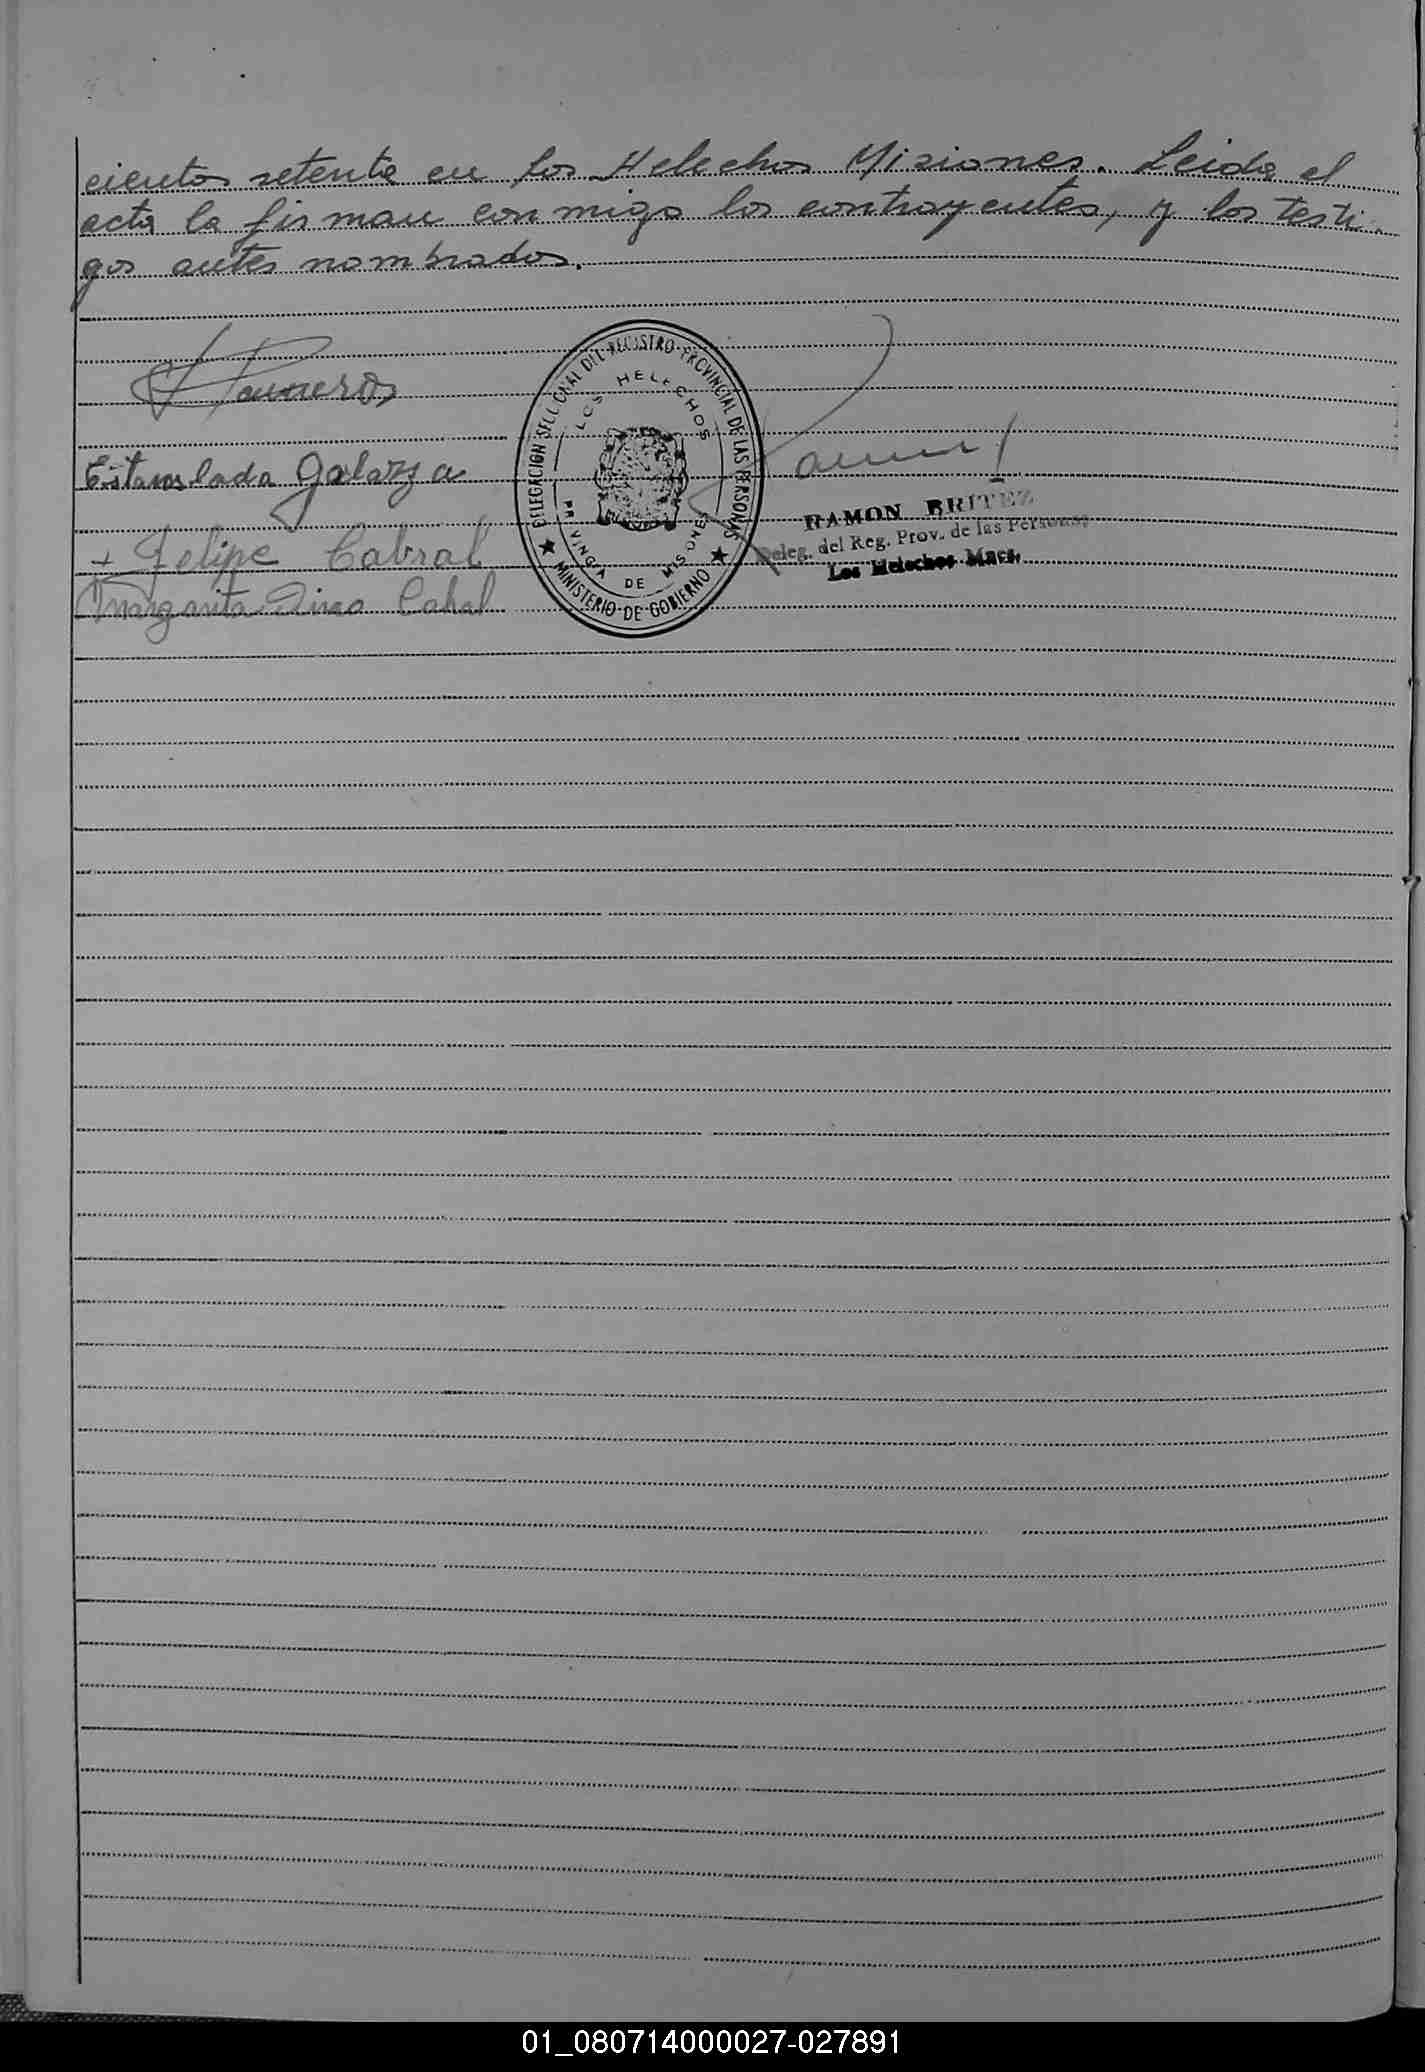 cientos setenta en Los Helechos Misiones. Leida el
acta la firman conmigo los contrayentes, y los testi-
gos antes nombrados.
DELEGACION SECCIONAL DEL REGISTRO PROVINCIAL DE LAS PERSONAS
LOS HELECHOS
PROVINCIA DE MISIONES
MINISTERIO DE GOBIERNO
Estanslada Galarza
RAMON BRITEZ
Deleg. del Reg. Prov. de las Personas
Los Helechos Mnes.
+ Felipe Cabral
Margarita Cabal
01_080714000027-027891